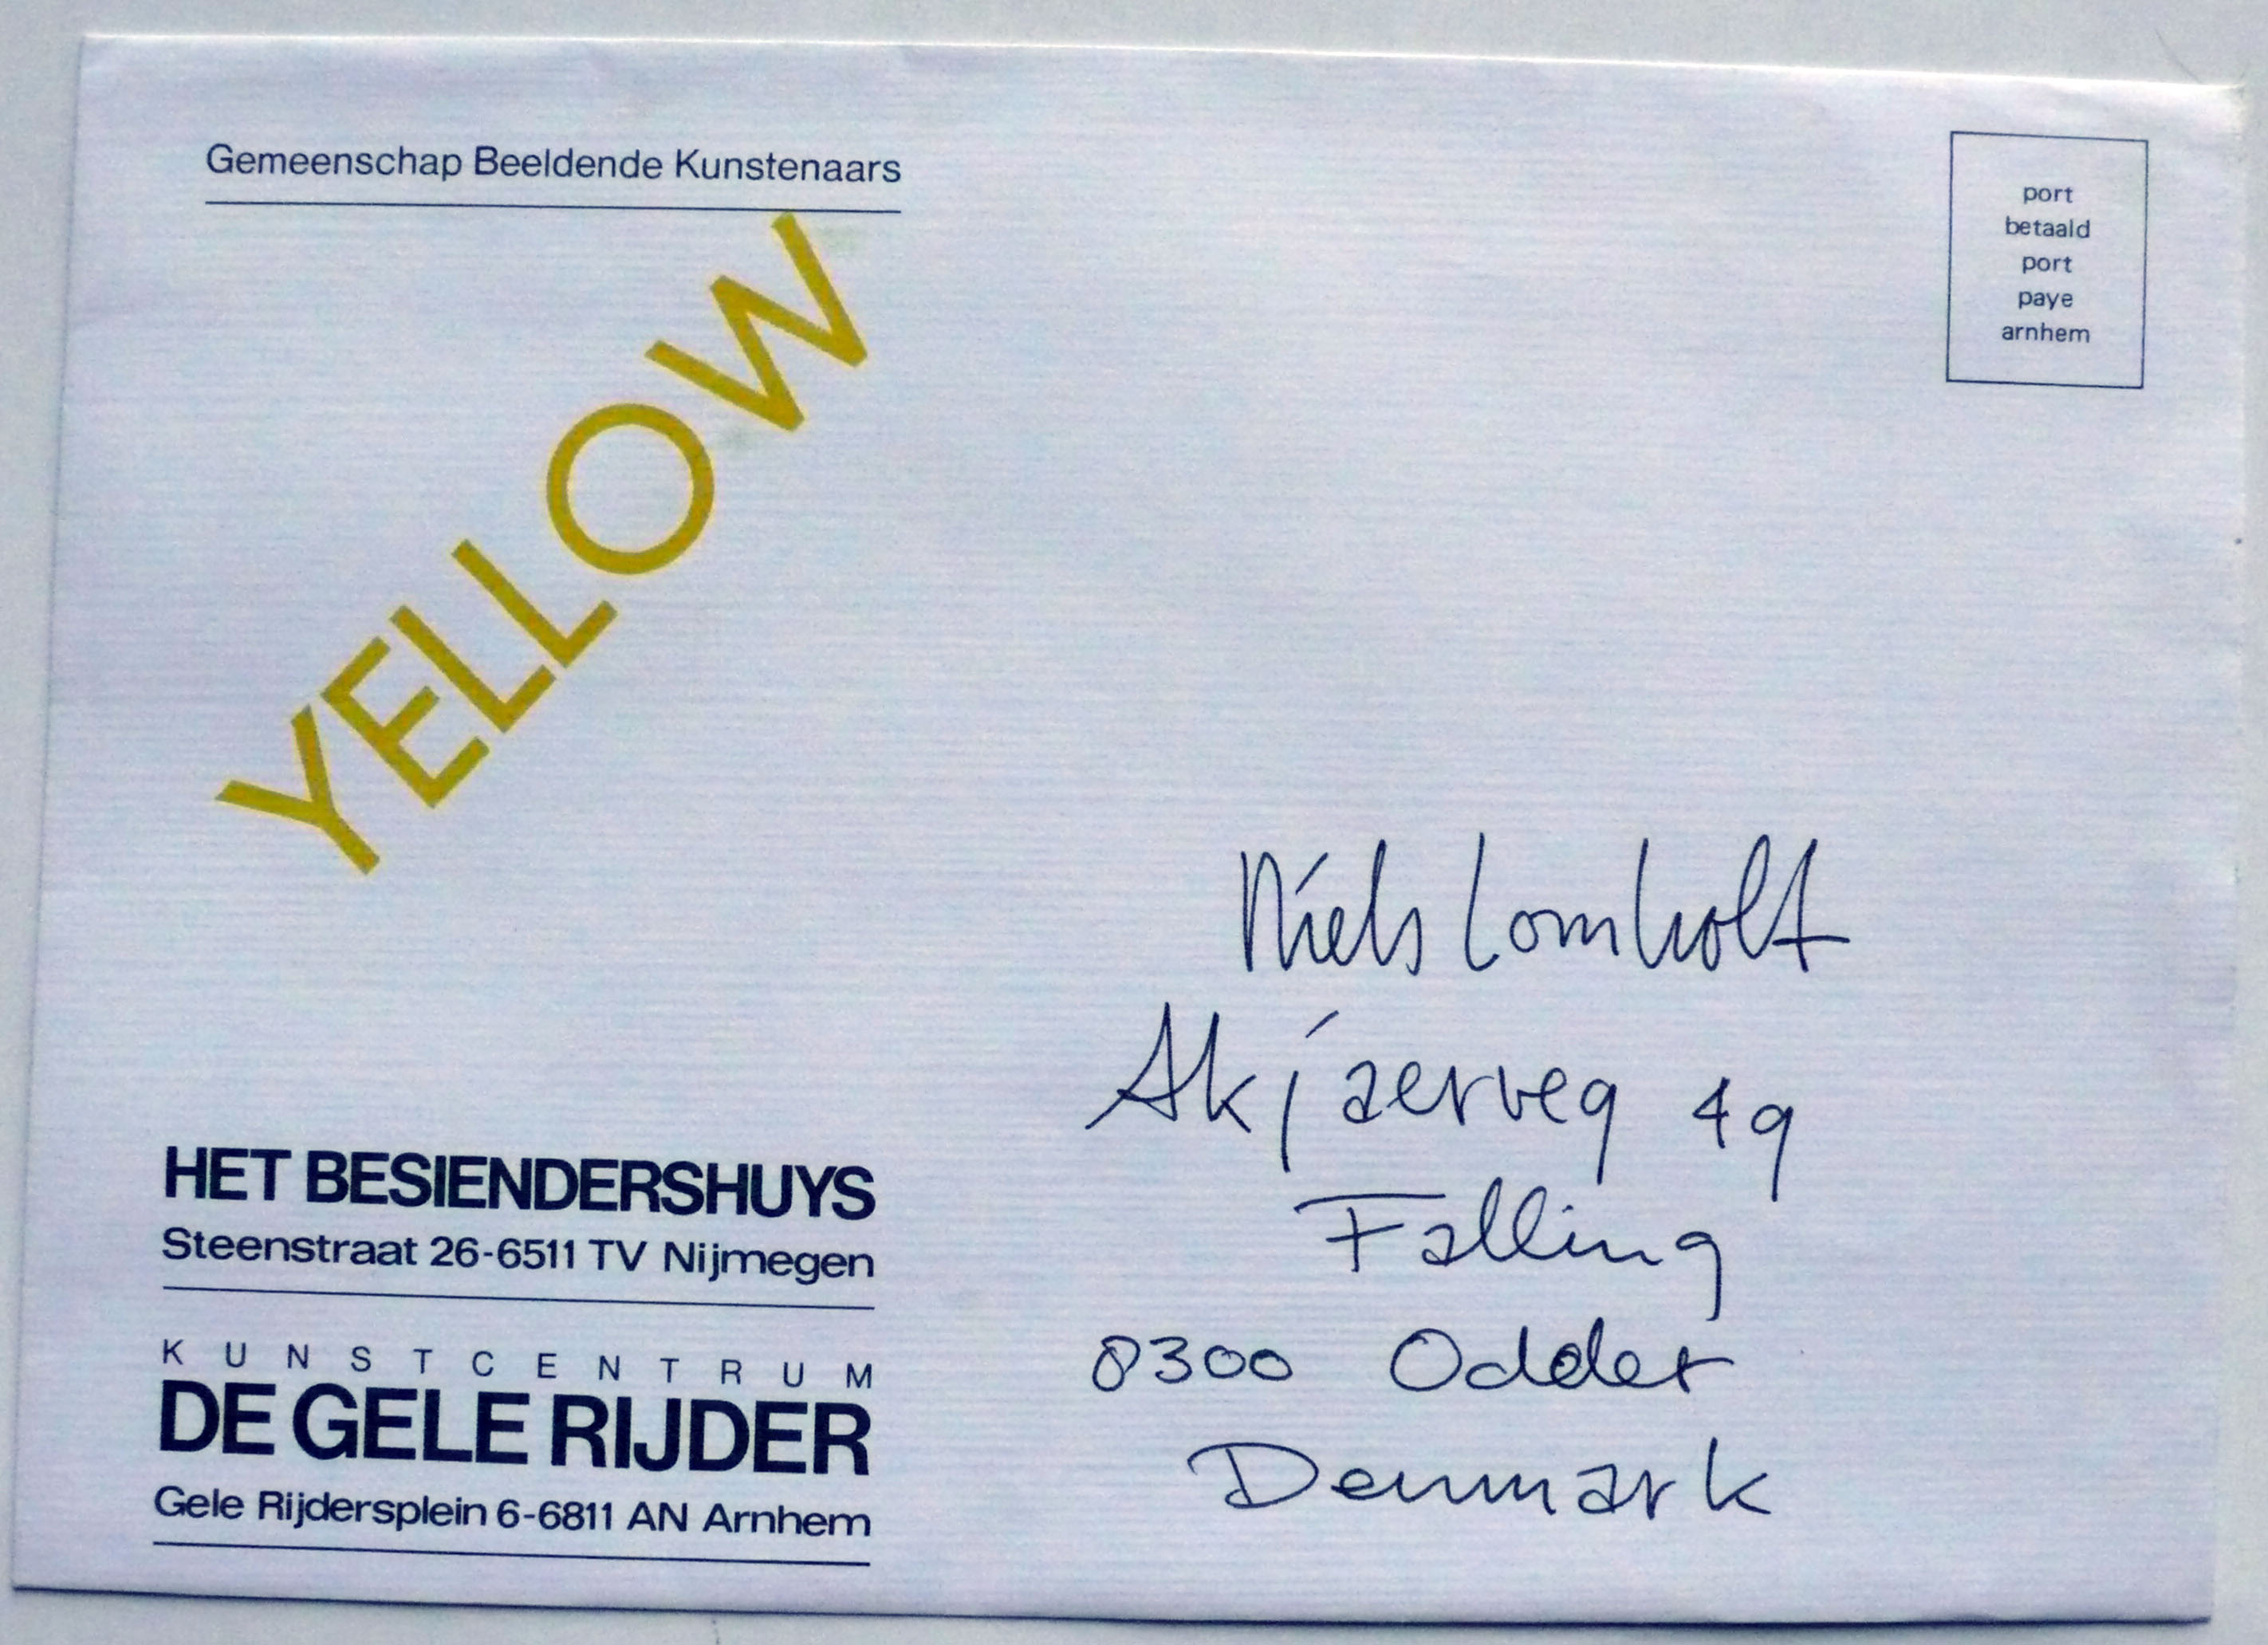 Gemeenschap Beeldende Kunstenaars
YELLOW
port
betaald
port
paye
arnhem
Niels Lomholt
Akjaerveg 49
Falling
8300 Odder
Denmark
HET BESIENDERSHUYS
Steenstraat 26-6511 TV Nijmegen
KUNSTCENTRUM
DE GELE RIJDER
Gele Rijdersplein 6-6811 AN Arnhem